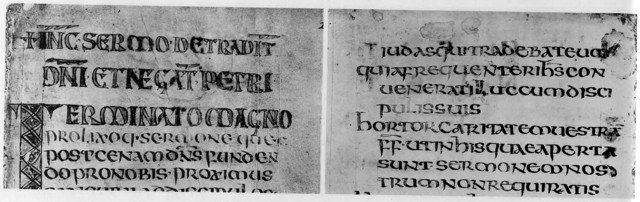 HINC·SERMO·DETRADIT
DNI ET NEGAT PETRI
TERMINATO MAGNO
PROLIXOQ·SERMONE QUE
POSTCENAM DNS FUNDEN
DO PRONOBIS·PROXIMUS
IUDAS QUI TRADEBAT EUM
QUIA FREQUENTER IHS CON
UENERAT ILLUC CUM DISCI
PULIS SUIS
HORTOR CARITATEM UESTRA
FF·UT IN HIS QUAE APERTA
SUNT SERMONEM NOS
TRUM NON REQUIRATIS